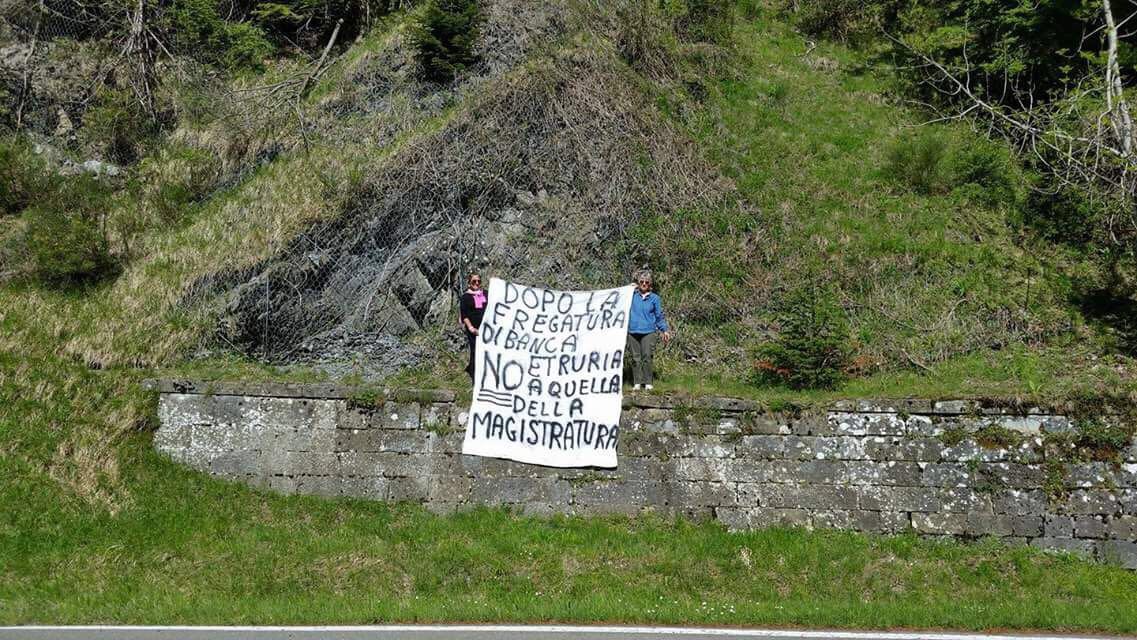 DOPO LA
FREGATURA
DI BANCA
ETRURIA
NO A QUELLA
DELLA
MAGISTRATURA